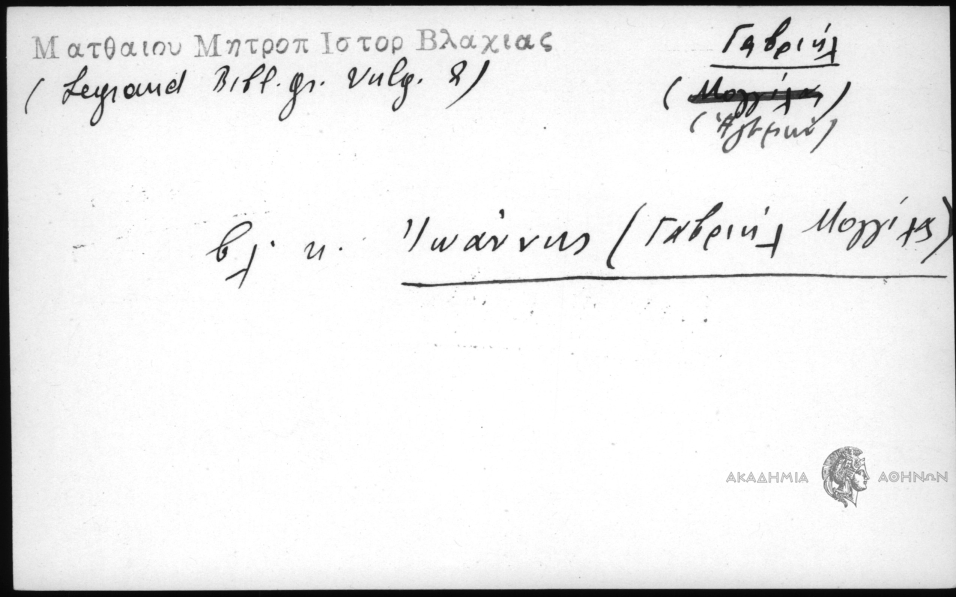 Ματθαιου Μητροπ Ιστορ Βλαχιας
(Legrand Bibl. gr. Vulg. 2)
Γαβριήλ
(Μογγίλας)
βλ. κ. Ἰωάννης (Γαβριήλ Μογγίλας)
ΑΚΑΔΗΜΙΑ ΑΘΗΝΩΝ